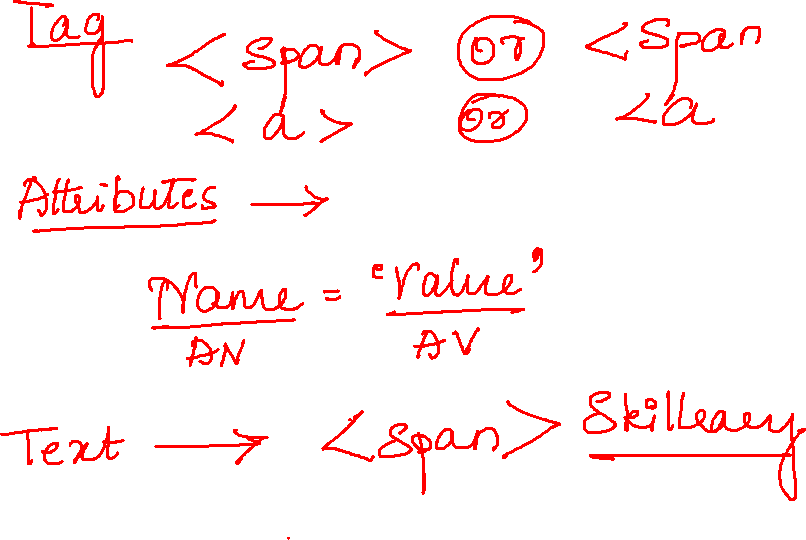 Tag <span> or <span
<a> or <a
Attributes →
Name = 'Value'
AN AV
Text → <span> Skilleary